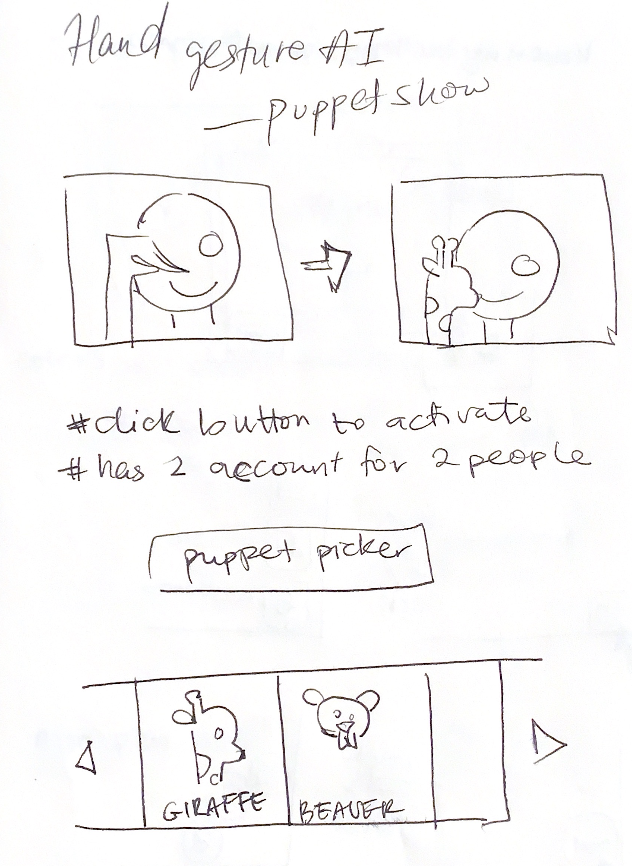 Hand gesture AI
—puppet show
#click button to activate
#has 2 account for 2 people
puppet picker
GIRAFFE
BEAVER